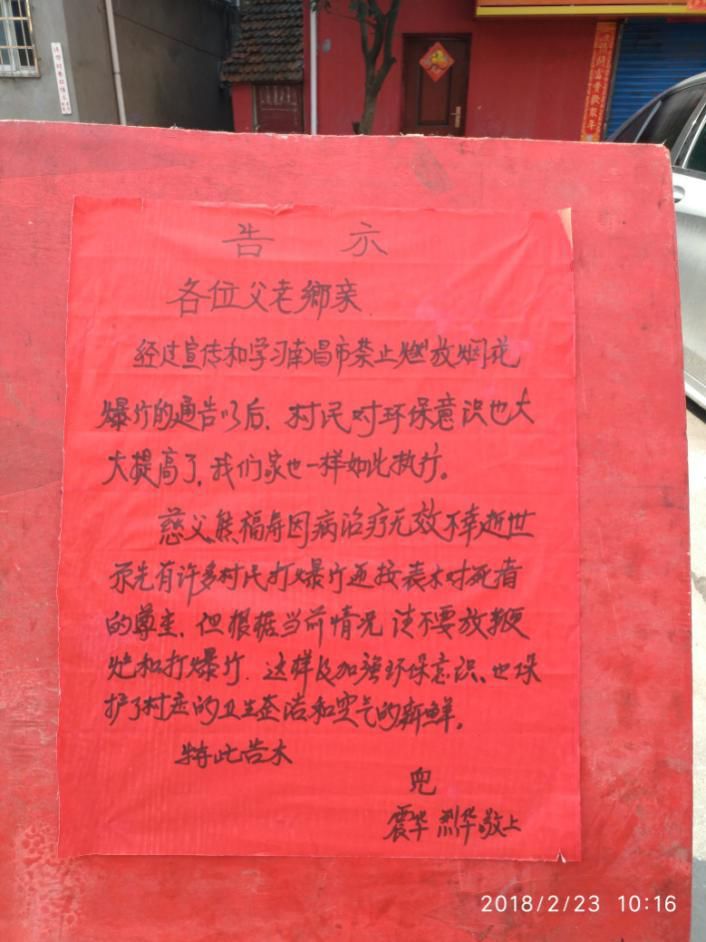 告 示
各位父老鄉亲
经过宣传和学习南昌市禁止燃放烟花
爆竹的通告以后，村民对环保意识也大
大提高了，我们家也一样如此执行。
慈父熊福寿因病治疗无效不幸逝世
示先有许多村民打爆竹迎接表示对死者
的尊重，但根据当前情况请不要放鞭
炮和打爆竹，这样及加强环保意识、也保
护了村庄的卫生整洁和空气的新鲜。
特此告示
兜
震华 烈华敬上
2018/2/23 10:16